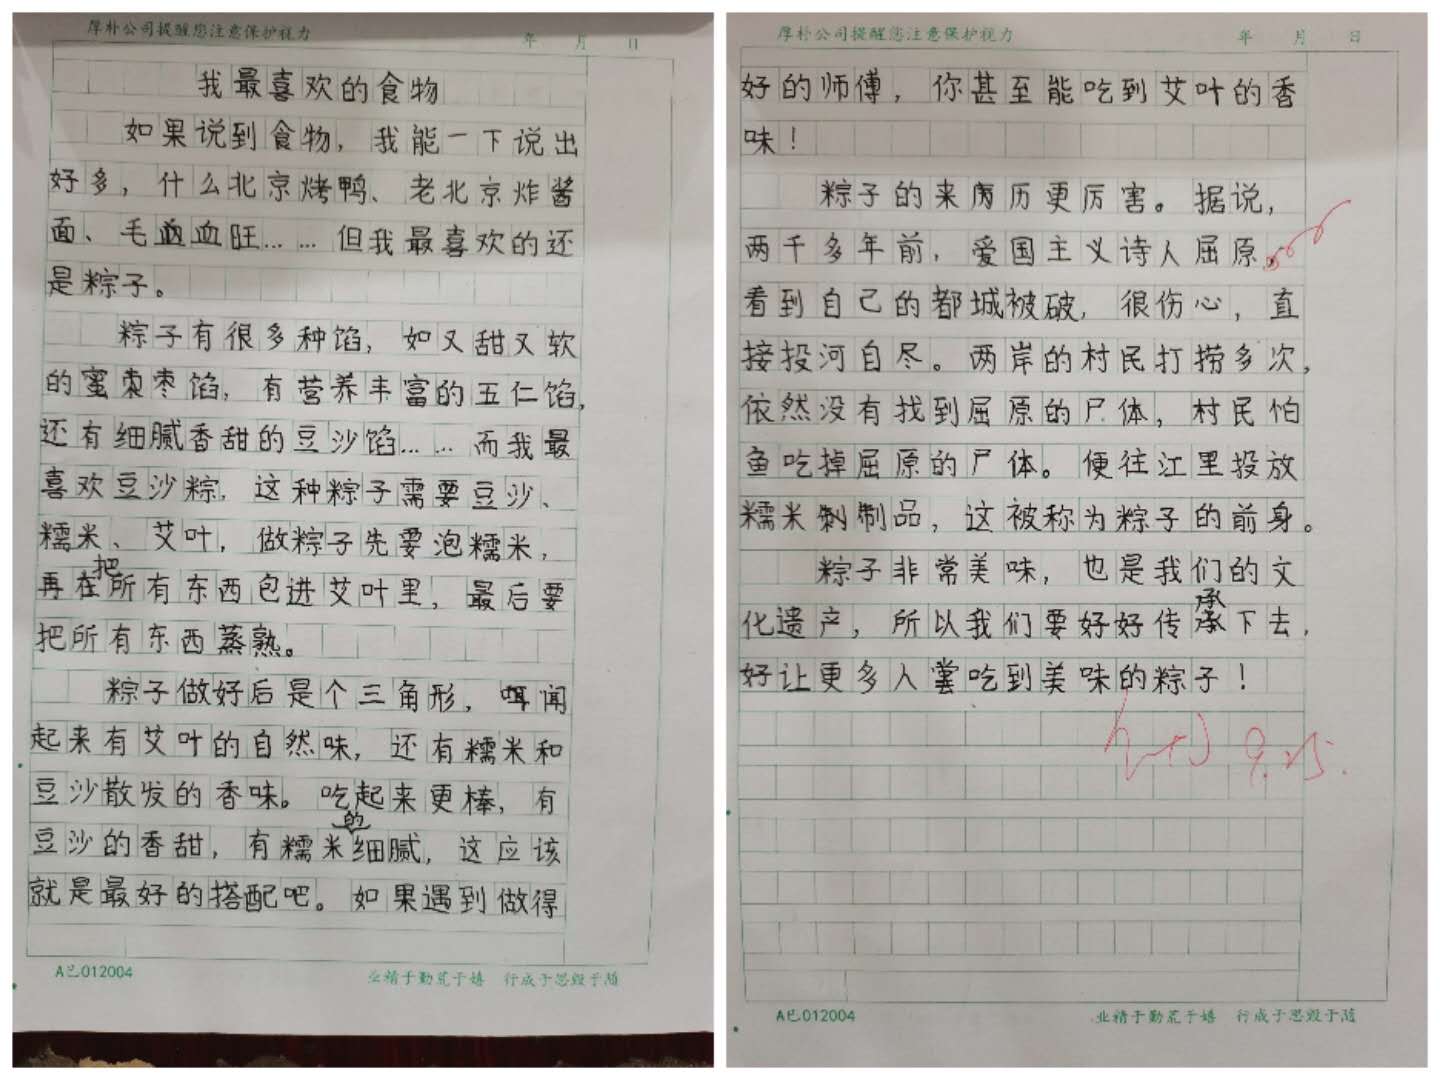 厚朴公司提醒您注意保护视力
年 月 日
我最喜欢的食物
如果说到食物，我能一下说出
好多，什么北京烤鸭、老北京炸酱
面、毛血旺……但我最喜欢的还
是粽子。
粽子有很多种馅，如又甜又软
的蜜枣馅，有营养丰富的五仁馅，
还有细腻香甜的豆沙馅……而我最
喜欢豆沙粽，这种粽子需要豆沙、
糯米、艾叶，做粽子先要泡糯米，
再把所有东西包进艾叶里，最后要
把所有东西蒸熟。
粽子做好后是个三角形，闻
起来有艾叶的自然味，还有糯米和
豆沙散发的香味。吃起来更棒，有
豆沙的香甜，有糯米的细腻，这应该
就是最好的搭配吧。如果遇到做得
A已012004
业精于勤荒于嬉 行成于思毁于随
厚朴公司提醒您注意保护视力
年 月 日
好的师傅，你甚至能吃到艾叶的香
味！
粽子的来历更厉害。据说，
两千多年前，爱国主义诗人屈原
看到自己的都城被破，很伤心，直
接投河自尽。两岸的村民打捞多次，
依然没有找到屈原的尸体，村民怕
鱼吃掉屈原的尸体。便往江里投放
糯米制品，这被称为粽子的前身。
粽子非常美味，也是我们的文
化遗产，所以我们要好好传承下去，
好让更多人吃到美味的粽子！
9.25.
A已012004
业精于勤荒于嬉 行成于思毁于随